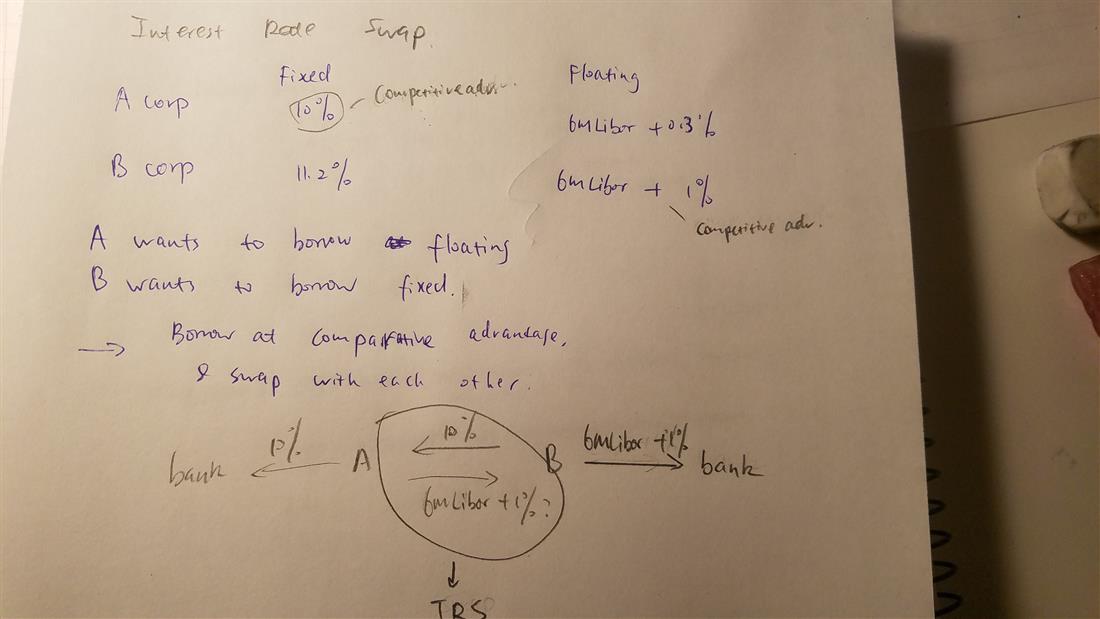 Interest Rate Swap.
Fixed Floating
A corp 10% Competitive adv. 6mLibor + 0.3%
B corp 11.2% 6mLibor + 1%
Competitive adv.
A wants to borrow floating
B wants to borrow fixed.
→ Borrow at comparative advantage,
& swap with each other.
bank ← 10% A ← 10% B 6mLibor + 1% → bank
→ 6mLibor + 1% ?
↓
IRS